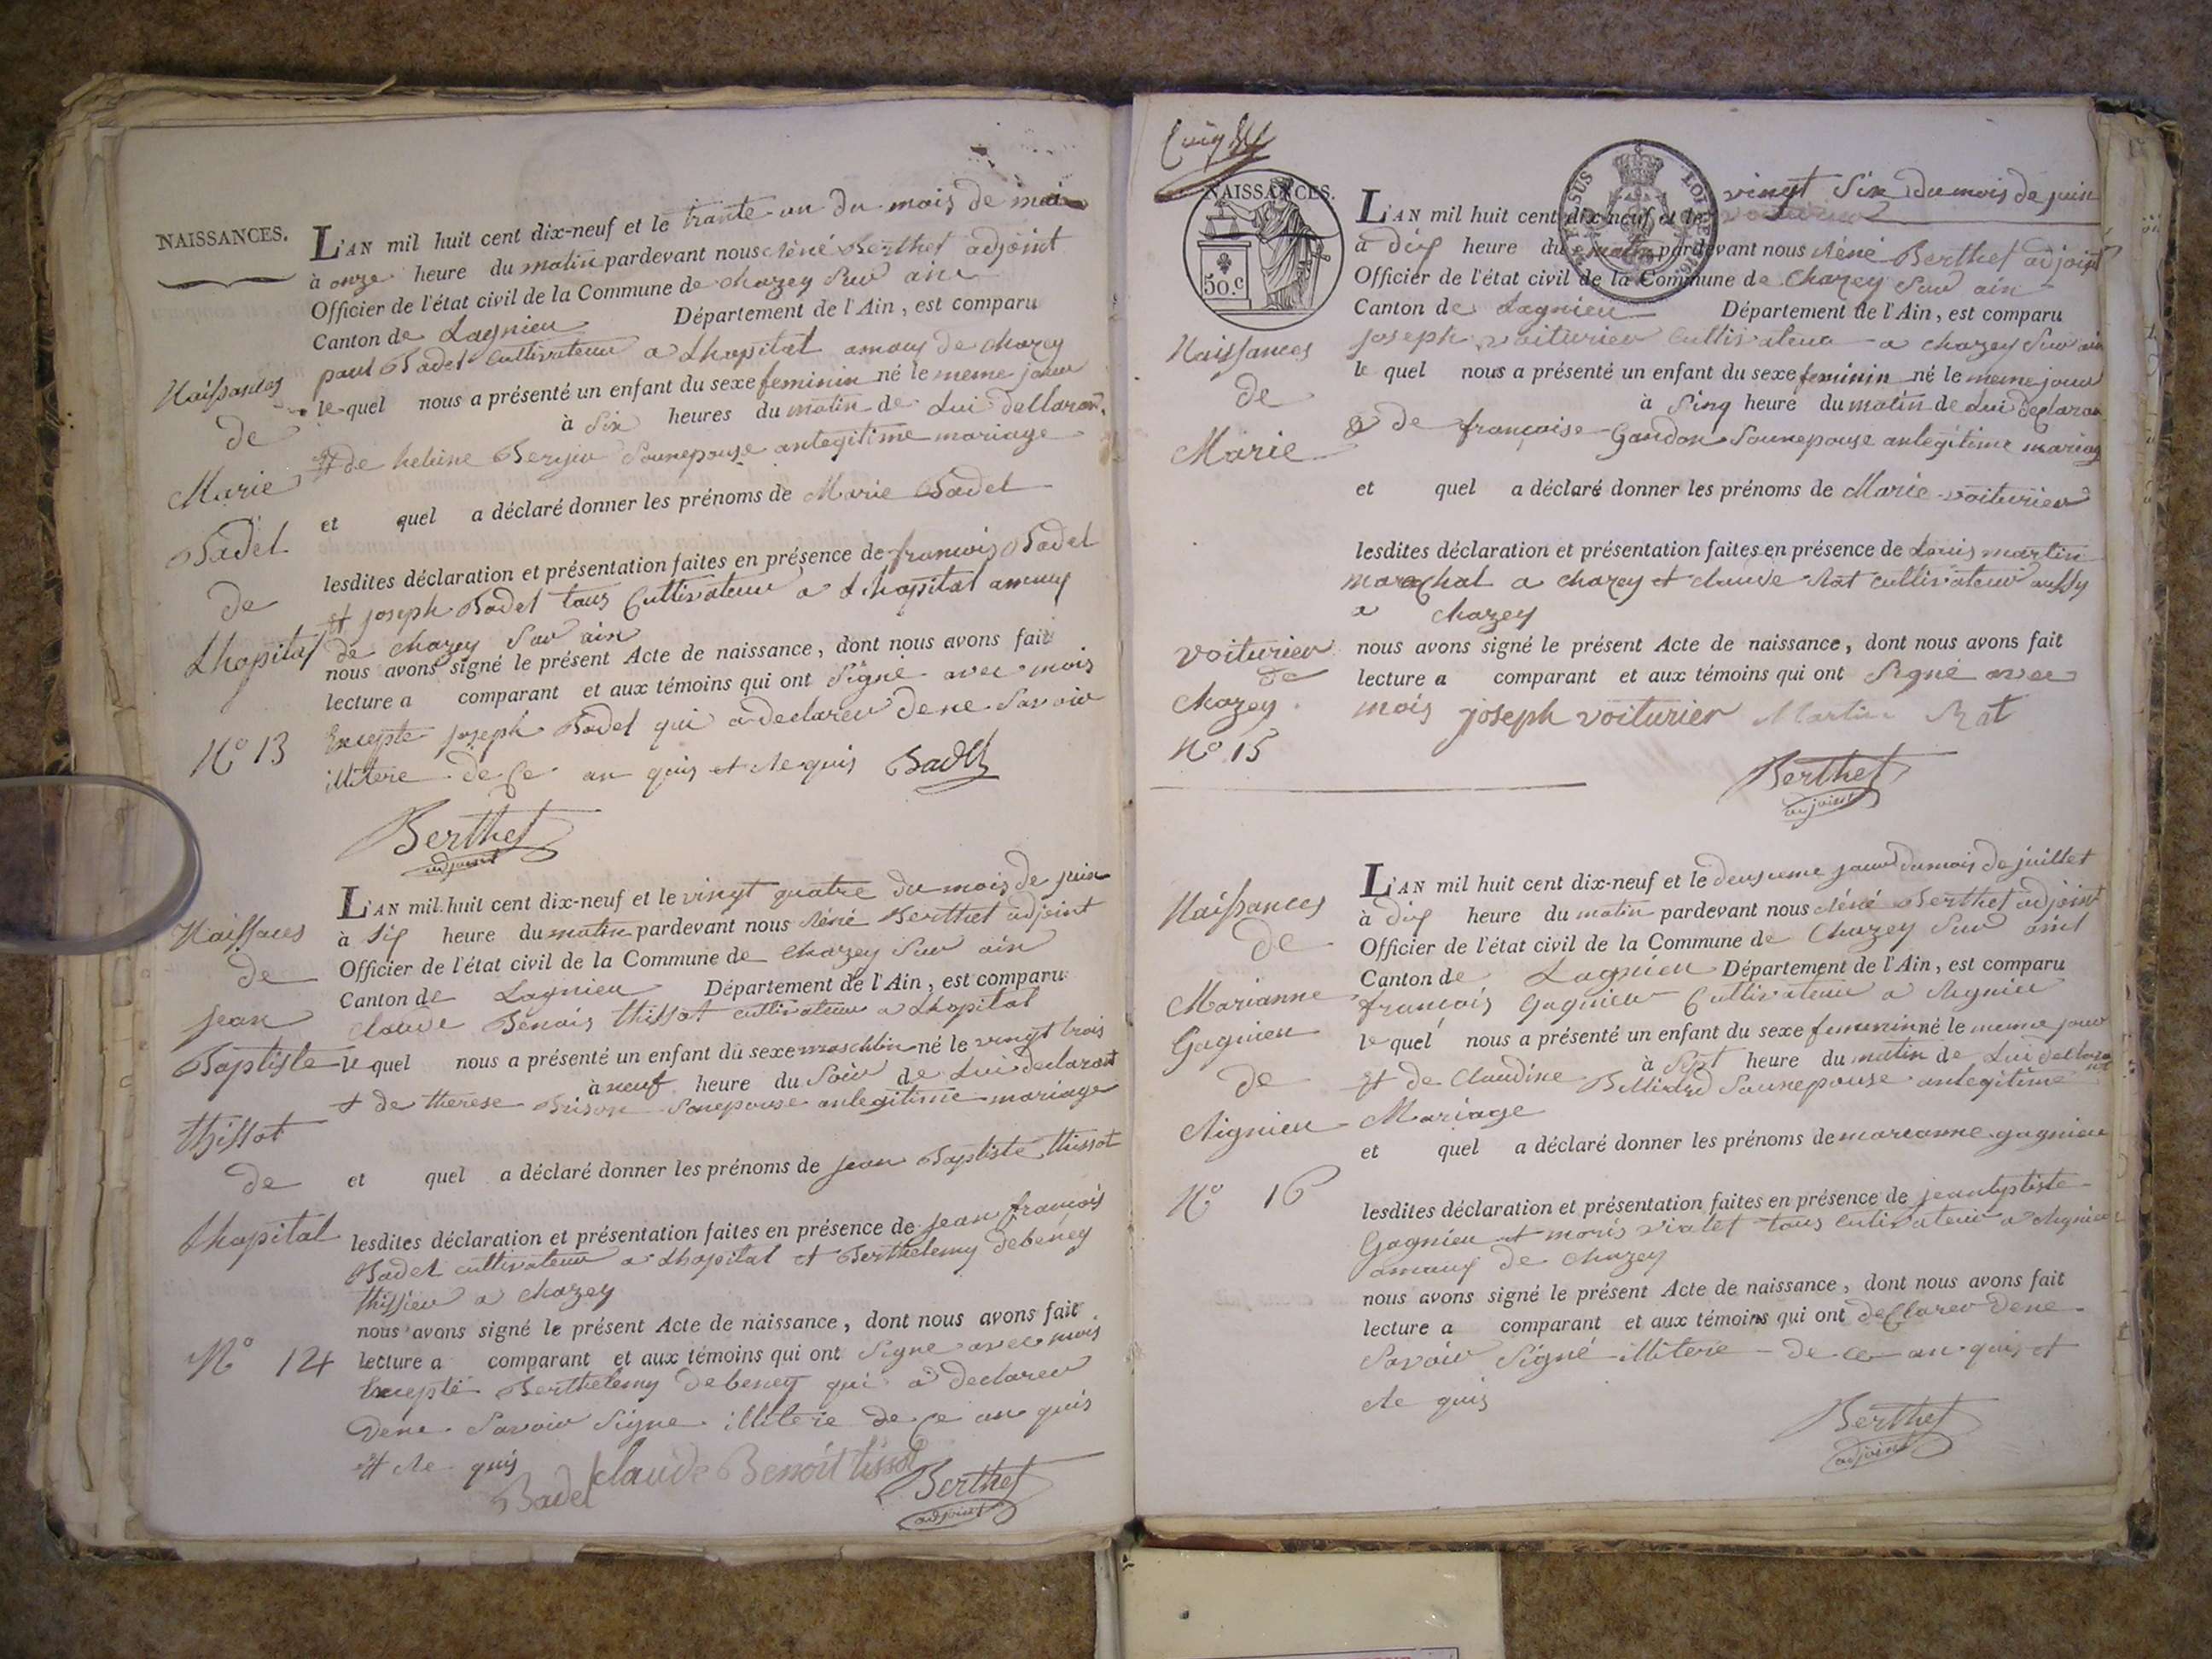 NAISSANCES.
L'AN mil huit cent dix-neuf et le trante un du mois de mai
à onze heure du matin pardevant nous réné Berthet adjoint
Officier de l'état civil de la Commune de chazey sur ain
Canton de Lagnieu Département de l'Ain, est comparu
paul Badel cultivateur a Lhopital amaux de chazey
le quel nous a présenté un enfant du sexe feminin né le meme jour
à six heures du matin de Lui dellaran
et de heleine sonnepouse anlegitime mariage
et quel a déclaré donner les prénoms de Marie Badel
lesdites déclaration et présentation faites en présence de francois Badel
et joseph Badel tous Cultivateur a Lhopital amaux
de chazey sur ain
nous avons signé le présent Acte de naissance, dont nous avons fait
lecture a comparant et aux témoins qui ont signé avec mois
Excepte joseph Badel qui a declarer dene savoir
illitere de ce an quis et Requis Badel
Berthet
adjoint
Naissances
de
Marie
Badel
de
Lhopital
N° 13
L'AN mil huit cent dix-neuf et le vingt quatre du mois de juin
à six heure du matin pardevant nous Réné Berthet adjoint
Officier de l'état civil de la Commune de chazey sur ain
Canton de Lagnieu Département de l'Ain, est comparu
claude Benois thissot cultivateur a Lhopital
le quel nous a présenté un enfant du sexe maschlin né le vingt trois
à neuf heure du soir de Lui declarant
et de therese Brison sonepouse anlegitime mariage
et quel a déclaré donner les prénoms de jean Baptiste thissot
lesdites déclaration et présentation faites en présence de jean francois
Badel cultivateur a Lhopital et Berthelemy debeney
thissieu a chazey
nous avons signé le présent Acte de naissance, dont nous avons fait
lecture a comparant et aux témoins qui ont signe avec mois
Excepté Berthelemy debeney qui a declarer
dene savoir signe illiterie de ce an quis
et Re quis
Badel claude Benoit tissot Berthet
adjoint
Naissaces
de
jean
Baptiste
thissot
de
Lhopital
N° 14
NAISSANCES.
50.c
L'AN mil huit cent dix-neuf et le vingt six du mois de juin
à dix heure du matin pardevant nous Réné Berthet adjoint
Officier de l'état civil de la Commune de chazey sur ain
Canton de Lagnieu Département de l'Ain, est comparu
joseph voiturier Cultivateur a chazey sur ain
le quel nous a présenté un enfant du sexe feminin né le meme jour
à sinq heure du matin de Lui declaran
de françoise Gandon sonnepouse anlegitime mariag
et quel a déclaré donner les prénoms de Marie voiturier
lesdites déclaration et présentation faites en présence de Louis martin
marechal a chazey et claude Rat cultivateur aussy
a chazey
nous avons signé le présent Acte de naissance, dont nous avons fait
lecture a comparant et aux témoins qui ont signé avec
mois joseph voiturier Martin Rat
Berthet
adjoint
Naissances
de
Marie
voiturier
de
chazey
N° 15
L'AN mil huit cent dix-neuf et le deusieme jour dumois de juillet
à dix heure du matin pardevant nous réné Berthet adjoint
Officier de l'état civil de la Commune de Chazey sur aint
Canton de Lagnieu Département de l'Ain, est comparu
francois gagnieu Cultivateur a Rignieu
le quel nous a présenté un enfant du sexe femininné le meme jour
à sept heure du matin de Lui declara
nt
et de Claudine Belliard sonnepouse anlegitime
Mariage
et quel a déclaré donner les prénoms de marianne gagnieu
lesdites déclaration et présentation faites en présence de jeanbptiste
Gagnieu et moris vialet tous cultivateur a Rignieu
amaux de chazey
nous avons signé le présent Acte de naissance, dont nous avons fait
lecture a comparant et aux témoins qui ont declarer dene
savoir signé illiterie de ce an quis et
Re quis
Berthet
adjoint
Naissances
de
Marianne
Gagnieu
de
Rignieu
N° 16